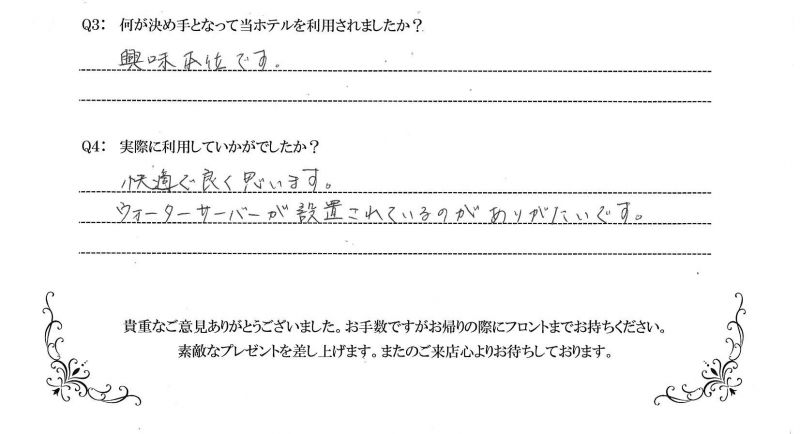 Q3: 何が決め手となって当ホテルを利用されましたか？
興味本位です。
Q4: 実際に利用していかがでしたか？
快適で良く思います。
ウォーターサーバーが設置されているのがありがたいです。
貴重なご意見ありがとうございました。お手数ですがお帰りの際にフロントまでお持ちください。
素敵なプレゼントを差し上げます。またのご来店心よりお待ちしております。